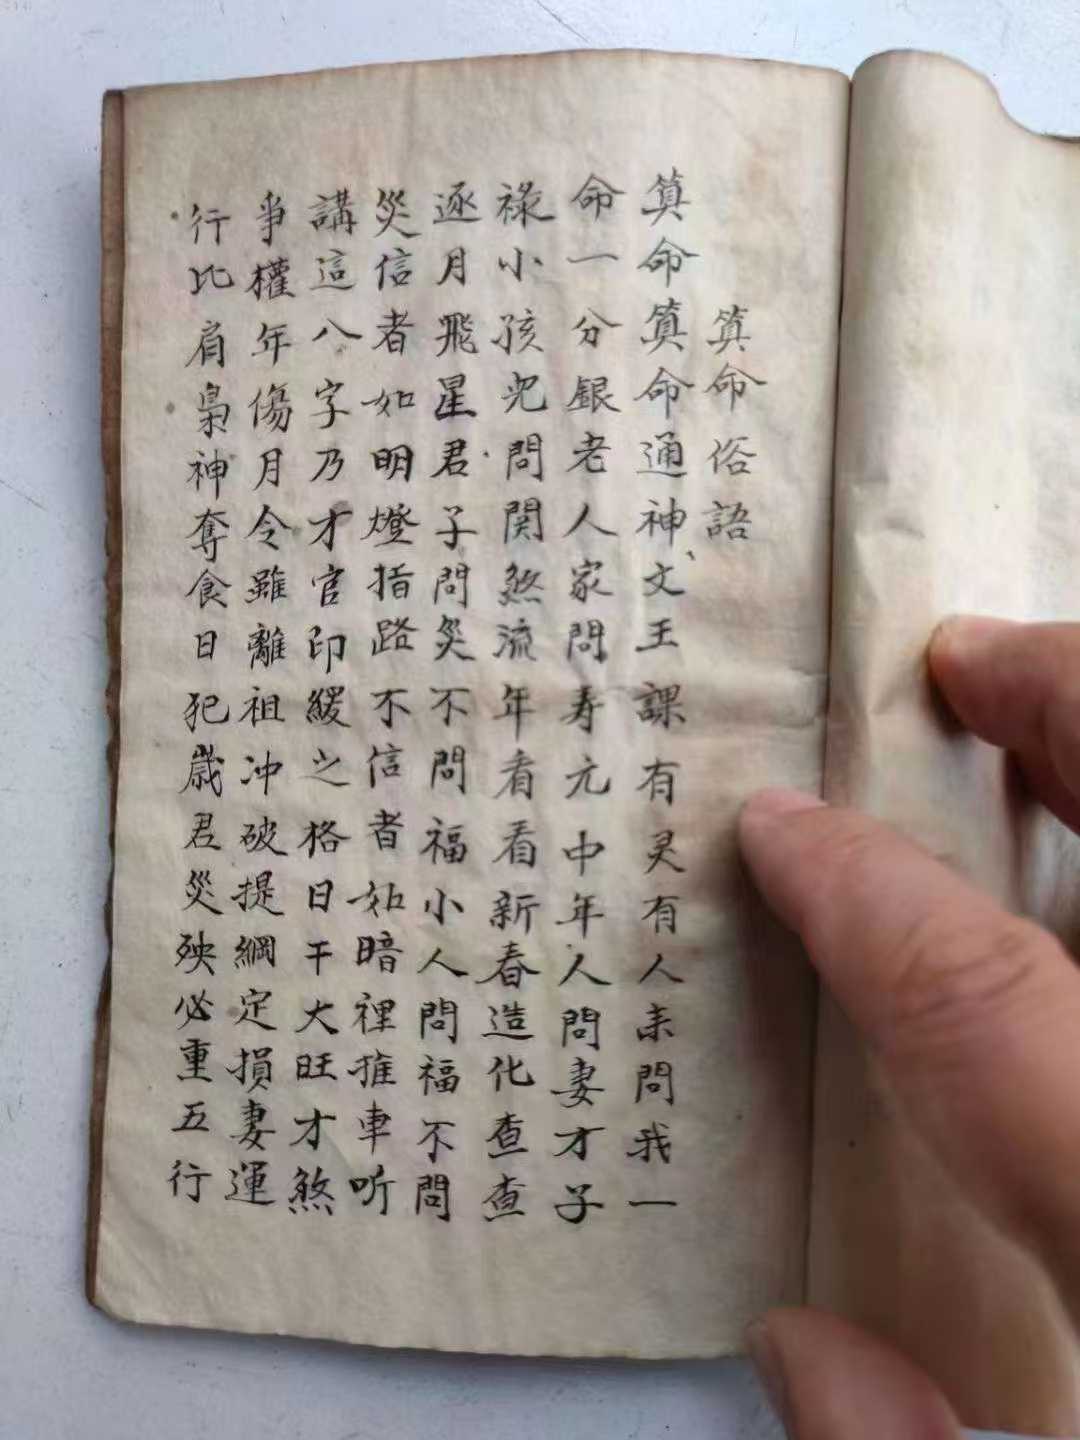 算命俗語
算命算命通神文王課有灵有人来問我一
命一分銀老人家問寿元中年人問妻才子
祿小孩児問関煞流年看看新春造化查查
逐月飛星君子問災不問福小人問福不問
災信者如明燈指路不信者如暗裡推車听
講這八字乃才官印綬之格日干大旺才煞
爭權年傷月令雖離祖冲破提綱定損妻運
行比肩梟神奪食日犯歲君災殃必重五行